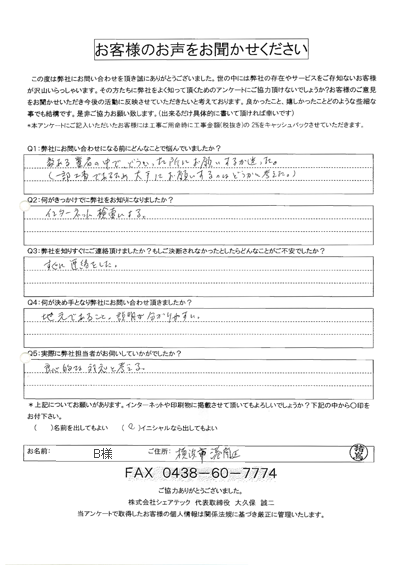 お客様のお声をお聞かせください
この度は弊社にお問い合わせを頂き誠にありがとうございました。世の中には弊社の存在やサービスをご存知ないお客様
が沢山いらっしゃいます。その方たちに弊社をよく知って頂くためのアンケートにご協力頂けないでしょうか?お客様のご意見
をお聞かせいただき今後の活動に反映させていただきたいと考えております。良かったこと、嬉しかったことどのような些細な
事でも結構です。是非ご協力お願い致します。(出来るだけ具体的に書いて頂ければ幸いです)
*本アンケートにご記入いただいたお客様には工事ご用命時に工事金額(税抜き)の2%をキャッシュバックさせていただきます。
Q1:弊社にお問い合わせになる前にどんなことで悩んでいましたか?
数ある業者の中で、どういった所にお願いするか迷った。
(一部工事であるため大手にお願いするのはどうかと考えた。)
Q2:何がきっかけでに弊社をお知りになりましたか?
インターネット検索による。
Q3:弊社を知りすぐにご連絡頂けましたか?もしご決断されなかったとしたらどんなことがご不安でしたか?
すぐに連絡をした。
Q4:何が決め手となり弊社にお問い合わせ頂きましたか?
地元であること。説明が分かりやすい。
Q5:実際に弊社担当者がお伺いしていかがでしたか?
良心的な対応と考える。
*上記についてお願いがあります。インターネットや印刷物に掲載させて頂いてもよろしいでしょうか?下記の中から〇印を
お付下さい。
( )名前を出してもよい (〇)イニシャルなら出してもよい
お名前: B様 ご住所: 横浜市港南区
FAX 0438-60-7774
ご協力ありがとうございました。
株式会社シェアテック 代表取締役 大久保 誠二
当アンケートで取得したお客様の個人情報は関係法規に基づき厳正に管理いたします。